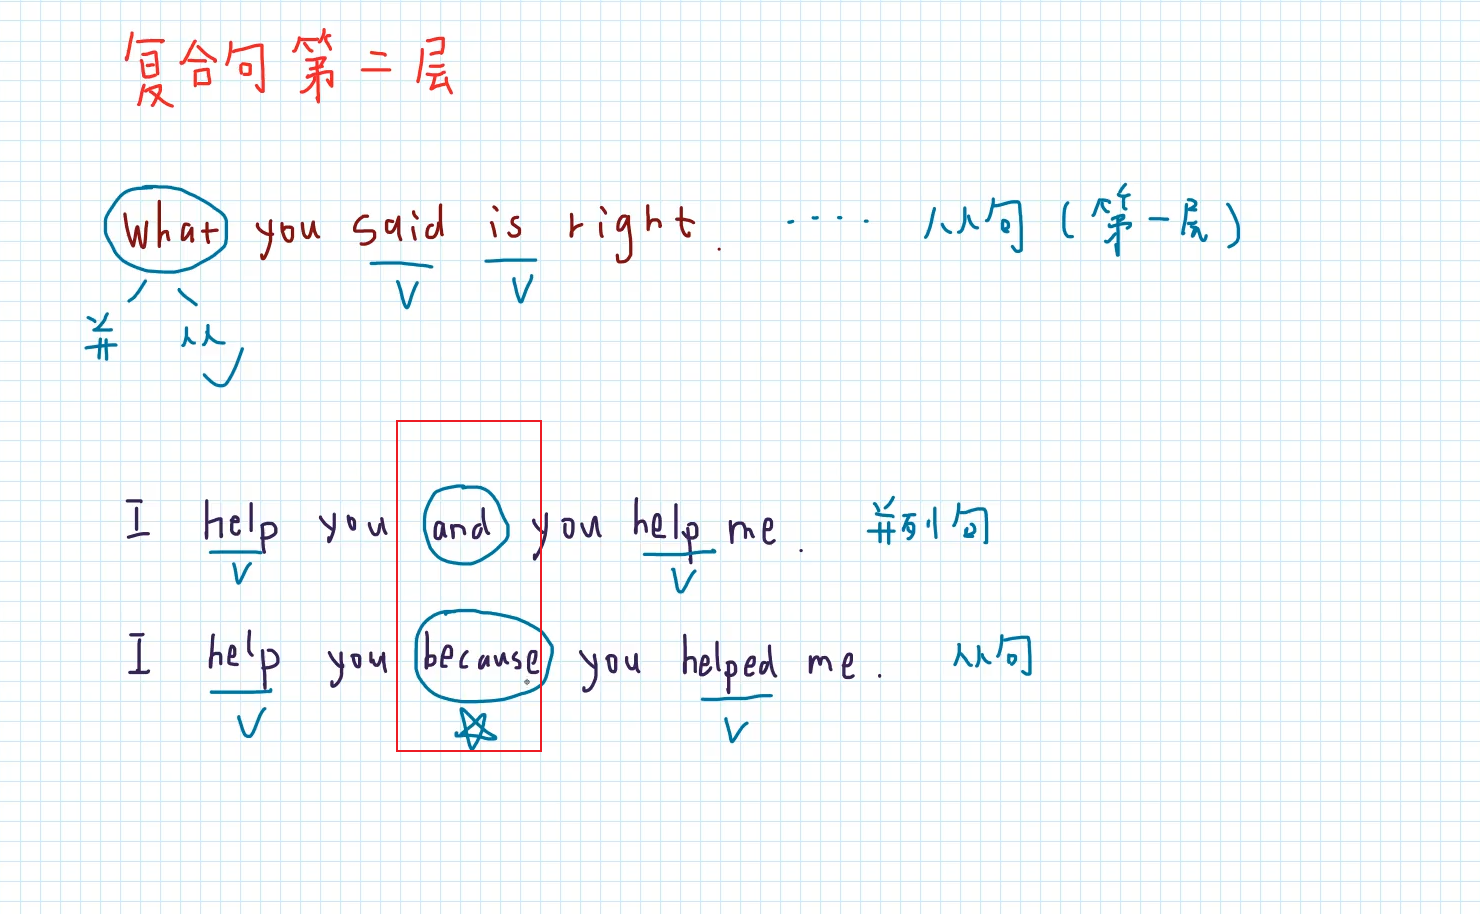 复合句第二层
What you said is right. ····· 从句(第一层)
V V
并 从
I help you and you help me. 并列句
V V
I help you because you helped me. 从句
V V